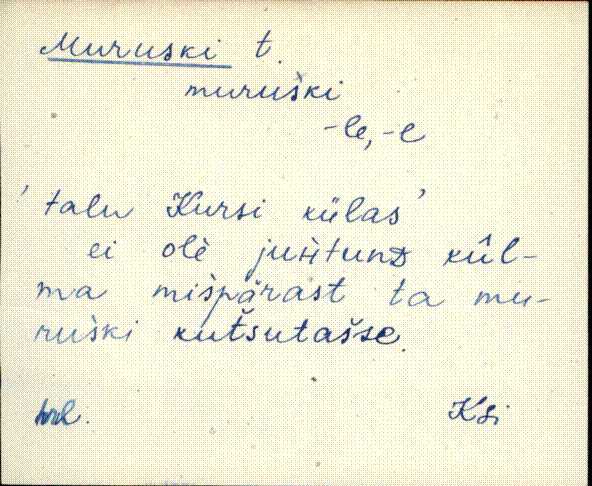 Muruski t.
muruški
-le, -l
'talu Kursi külas'
ei olè juhtund kûl-
ma mišpärast ta mu-
ruški kutšsutašse.
Ksi